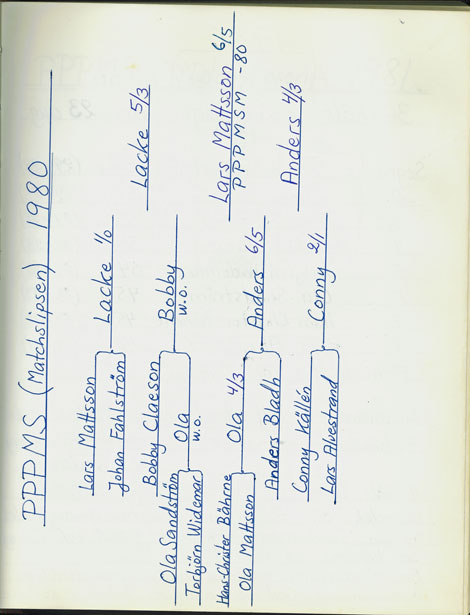 PPPMS (Matchslipsen) 1980
Lars Mattsson
Johan Fahlström
Lacke 1/0
Bobby Claeson
Ola Sandström
Torbjörn Widemar
Ola
w.o.
Bobby
w.o.
Lacke 5/3
Hans-Christer Bährne
Ola Mattsson
Ola 4/3
Anders Bladh
Anders 6/5
Conny Källén
Lars Alvestrand
Conny 2/1
Anders 4/3
Lars Mattsson 6/5
PPPMSM -80